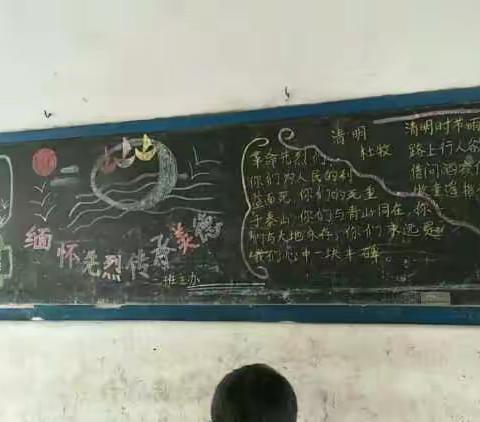 缅怀先烈传承美德
班主办
革命先烈们
你们为人民的利
益而死，你们的死重
于泰山，你们与青山同在，你
们与大地永存，你们永远是
我们心中一块丰碑。
清明
杜牧
清明时节雨
路上行人欲
借问酒家
牧童遥指